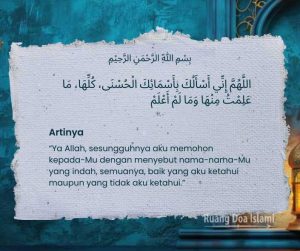 بِسْمِ اللهِ الرَّحْمَنِ الرَّحِيْمِ
اللَّهُمَّ إِنِّي أَسْأَلُكَ بِأَسْمَائِكَ الْحُسْنَى، كُلِّهَا، مَا
عَلِمْتُ مِنْهَا وَمَا لَمْ أَعْلَمْ
Artinya
“Ya Allah, sesungguhnya aku memohon
kepada-Mu dengan menyebut nama-nama-Mu
yang indah, semuanya, baik yang aku ketahui
maupun yang tidak aku ketahui.”
Ruang Doa Islami